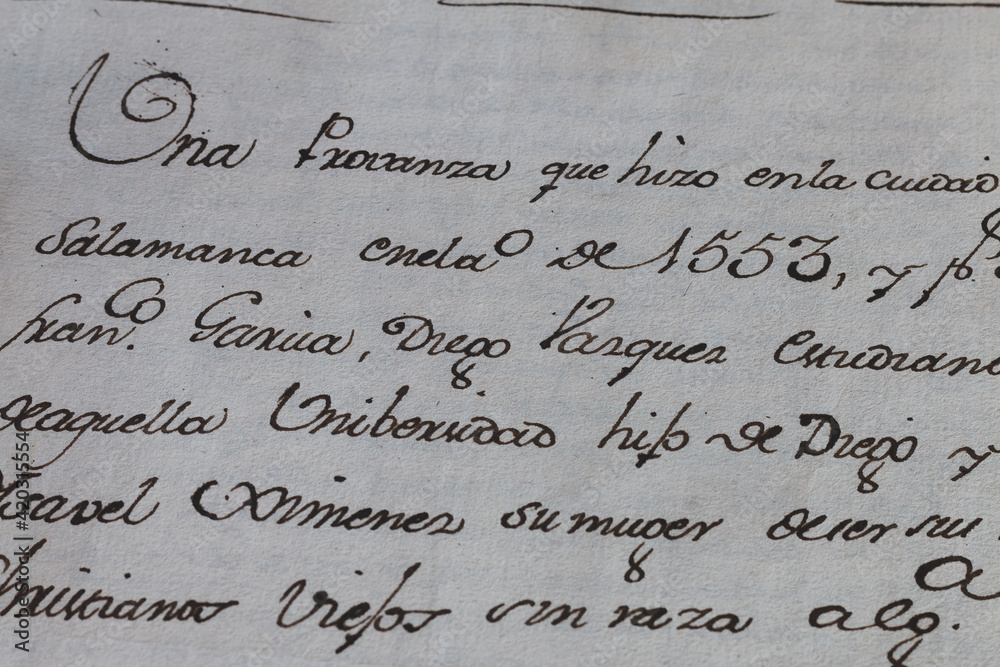 Una Provanza que hizo en la ciudad
Salamanca en el a.º de 1553, y p.r
fran.co Garcia, Diego Vazquez estudian
de aquella Unibersidad hijo de Diego y
Ysavel Ximenez su muger de ser sus
Christianos Viejos sin raza alg.a
Adobe Stock | #420315554